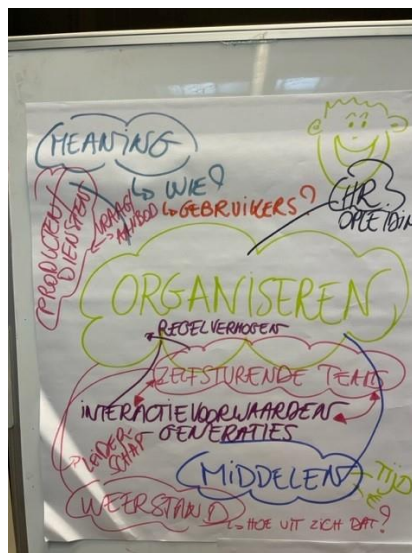 MEANING
↳ WIE?
↳ GEBRUIKERS?
PRODUCTEN/
DIENSTEN
VRAAG/
AANBOD
HR?
OPLEIDIN
ORGANISEREN
REGELVERMOGEN
ZELFSTURENDE TEAMS
INTERACTIEVOORWAARDEN
GENERATIES
LEIDER-
SCHAP
MIDDELEN
TIJD
WEERSTAND
↳ HOE UIT ZICH DAT?